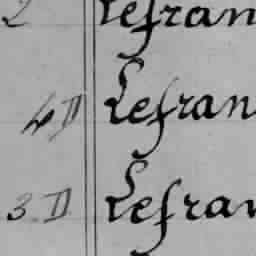 2 Lefran
4 D Lefran
3 D Lefran